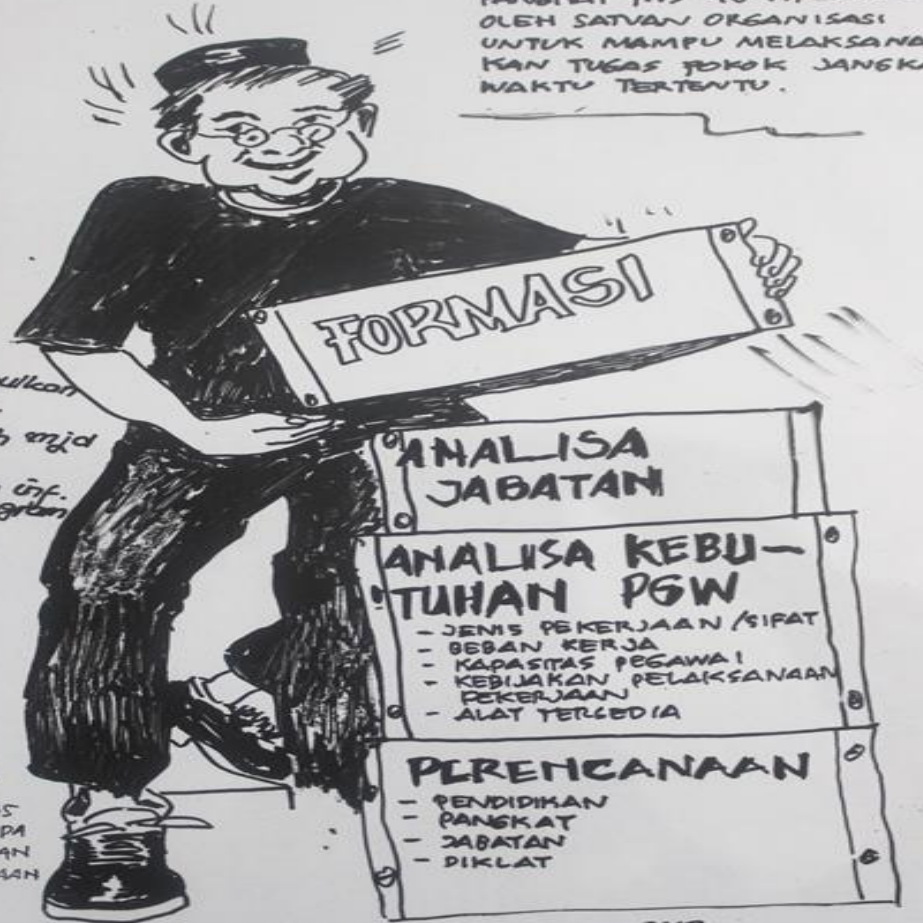 OLEH SATUAN ORGANISASI
UNTUK MAMPU MELAKSANA
KAN TUGAS POKOK JANGKA
WAKTU TERTENTU.
FORMASI
mjd
inf.
ANALISA
JABATAN
ANALISA KEBU-
TUHAN PGW
- JENIS PEKERJAAN/SIFAT
- BEBAN KERJA
- KAPASITAS PEGAWAI
- KEBIJAKAN PELAKSANAAN
PEKERJAAN
- ALAT TERSEDIA
PERENCANAAN
- PENDIDIKAN
- PANGKAT
- JABATAN
- DIKLAT